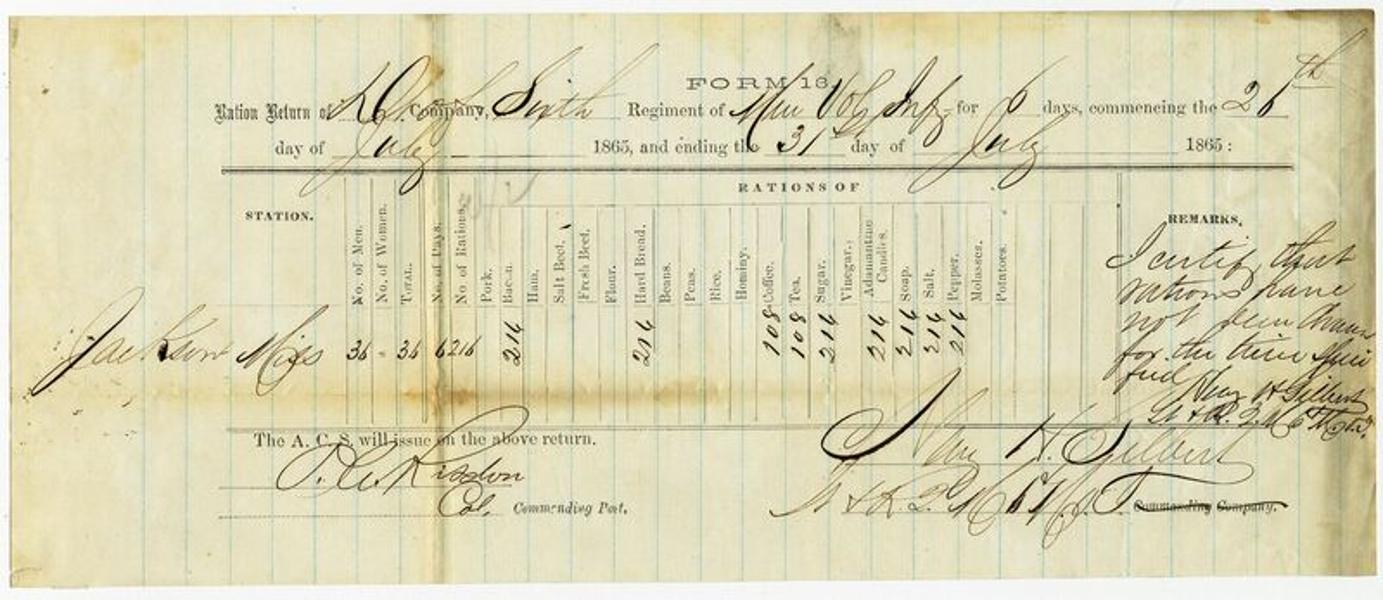 FORM 13.
Ration Return of Company, Sixth Regiment of Mo Vol Inf for 6 days, commencing the 26th
day of July 1865, and ending the 31st day of July 1865:
RATIONS OF
STATION. No. of Men. No. of Women. TOTAL. No. of Days. No. of Rations. Pork. Bacon. Ham. Salt Beef. Fresh Beef. Flour. Hard Bread. Beans. Peas. Rice. Hominy. Coffee. Tea. Sugar. Vinegar. Adamantine Candles. Soap. Salt. Pepper. Molasses. Potatoes. REMARKS.
Jackson Miss 36 " 36 6 216 216 216 108 108 216 216 216 216 216
I certify that
rations have
not been drawn
for the time speci
fied
H Gilbert
The A. C. S. will issue on the above return.
Risdon
Col. Commanding Post.
H. Gilbert
Commanding Company.